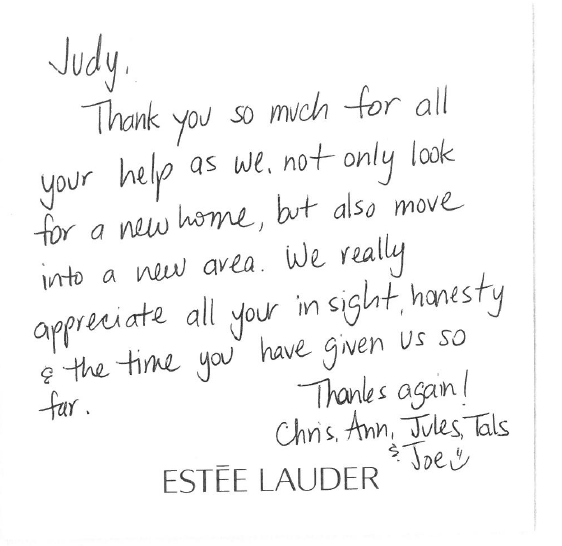 Judy,
Thank you so much for all
your help as we, not only look
for a new home, but also move
into a new area. We really
appreciate all your insight, honesty
& the time you have given us so
far.
Thanks again!
Chris, Ann, Jules, Tals
& Joe
ESTĒE LAUDER